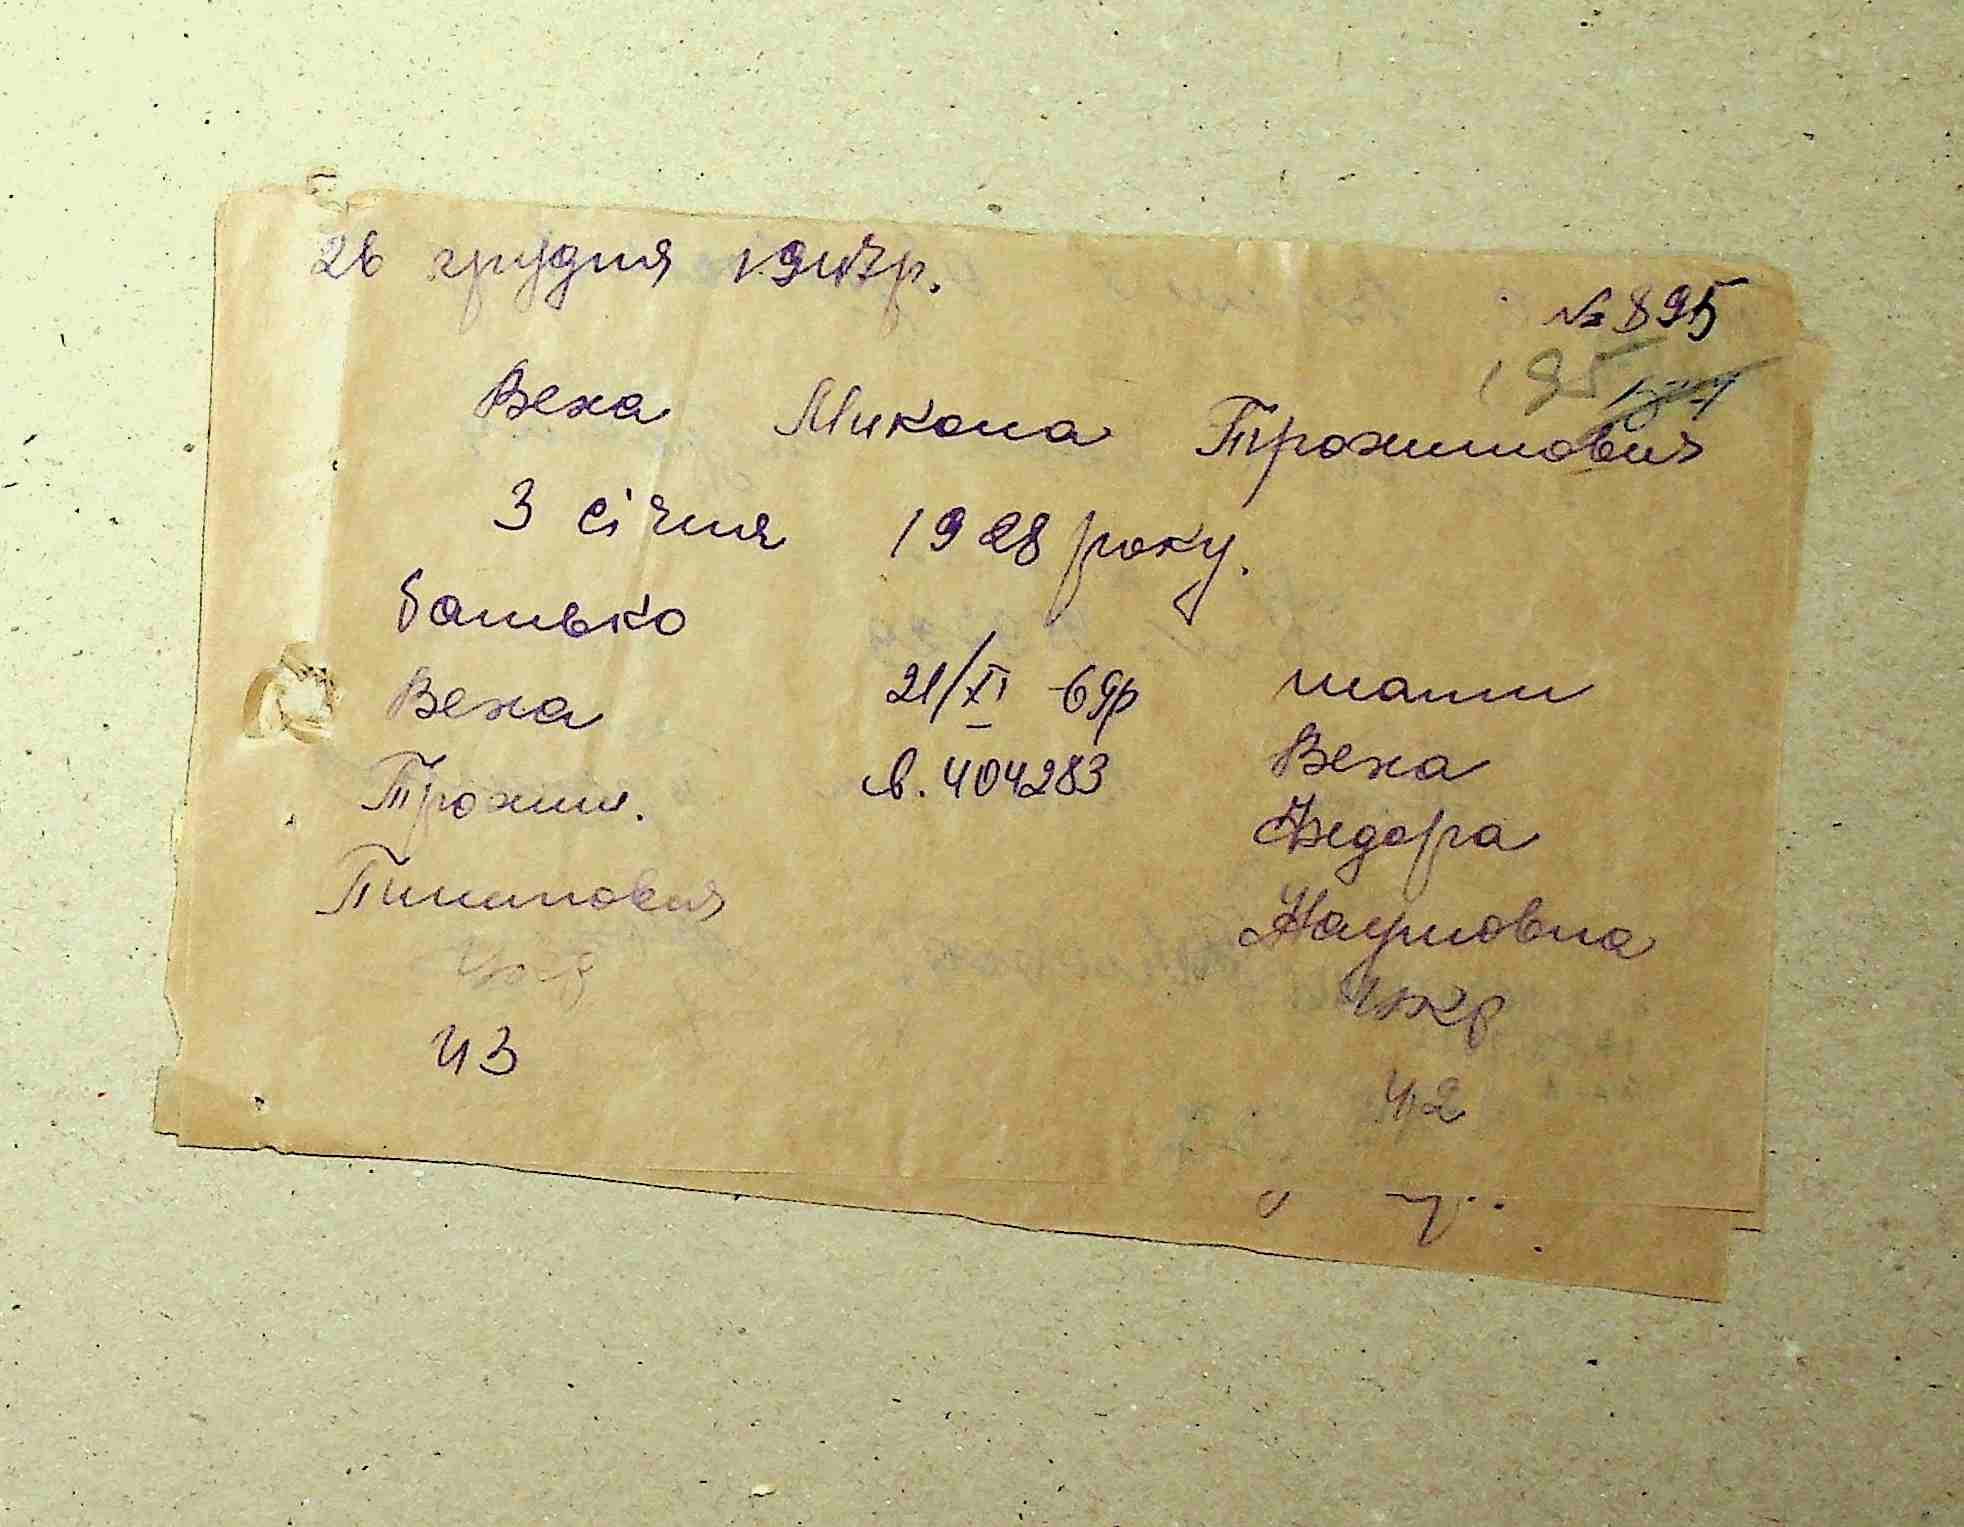 26 грудня 1947р.
№ 895
195
Веха Микола Трохимович
3 січня 1928 року.
батько
Веха 21/XI 69р мати
Трохим. в. 404283 Веха
Федора
Пилипович
Наумовна
Укр
Укр
43
42